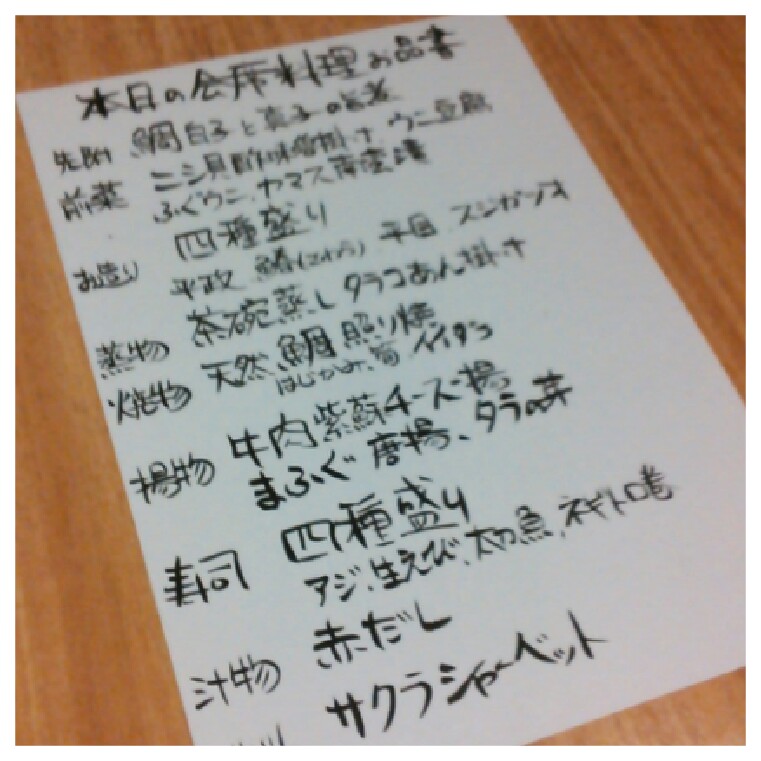 本日の会席料理お品書
先附 鯛白子と真子の旨煮
前菜 ニシ貝酢味噌掛け ウニ豆腐
ふぐウニ、ヤマス南蛮漬
お造り 四種盛り
平政 鰆(さわら) 平目 スジガツオ
蒸物 茶碗蒸し タラコあん掛け
焼物 天然鯛照り焼
はじかみ、筍 イイダコ
揚物 牛肉紫蘇チーズ揚
まふぐ唐揚、タラの芽
寿司 四種盛り
アジ、生えび、太刀魚、ネギトロ巻
汁物 赤だし
サクラシャーベット